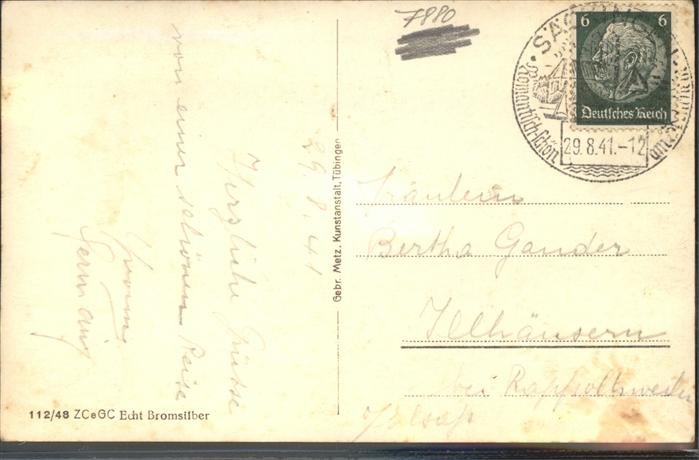 7880
SÄCKINGEN
Romantisch-schön
6 6
Deutsches Reich
29.8.41.-12
29. 8. 41
Herzliche Grüsse
von einer schönen Reise
Germaine
Fräulein
Bertha Gander
Illhäusern
bei Rappoltsweiler
Elsass
Gebr. Metz, Kunstanstalt, Tübingen
112/48 ZCeGC Echt Bromsilber